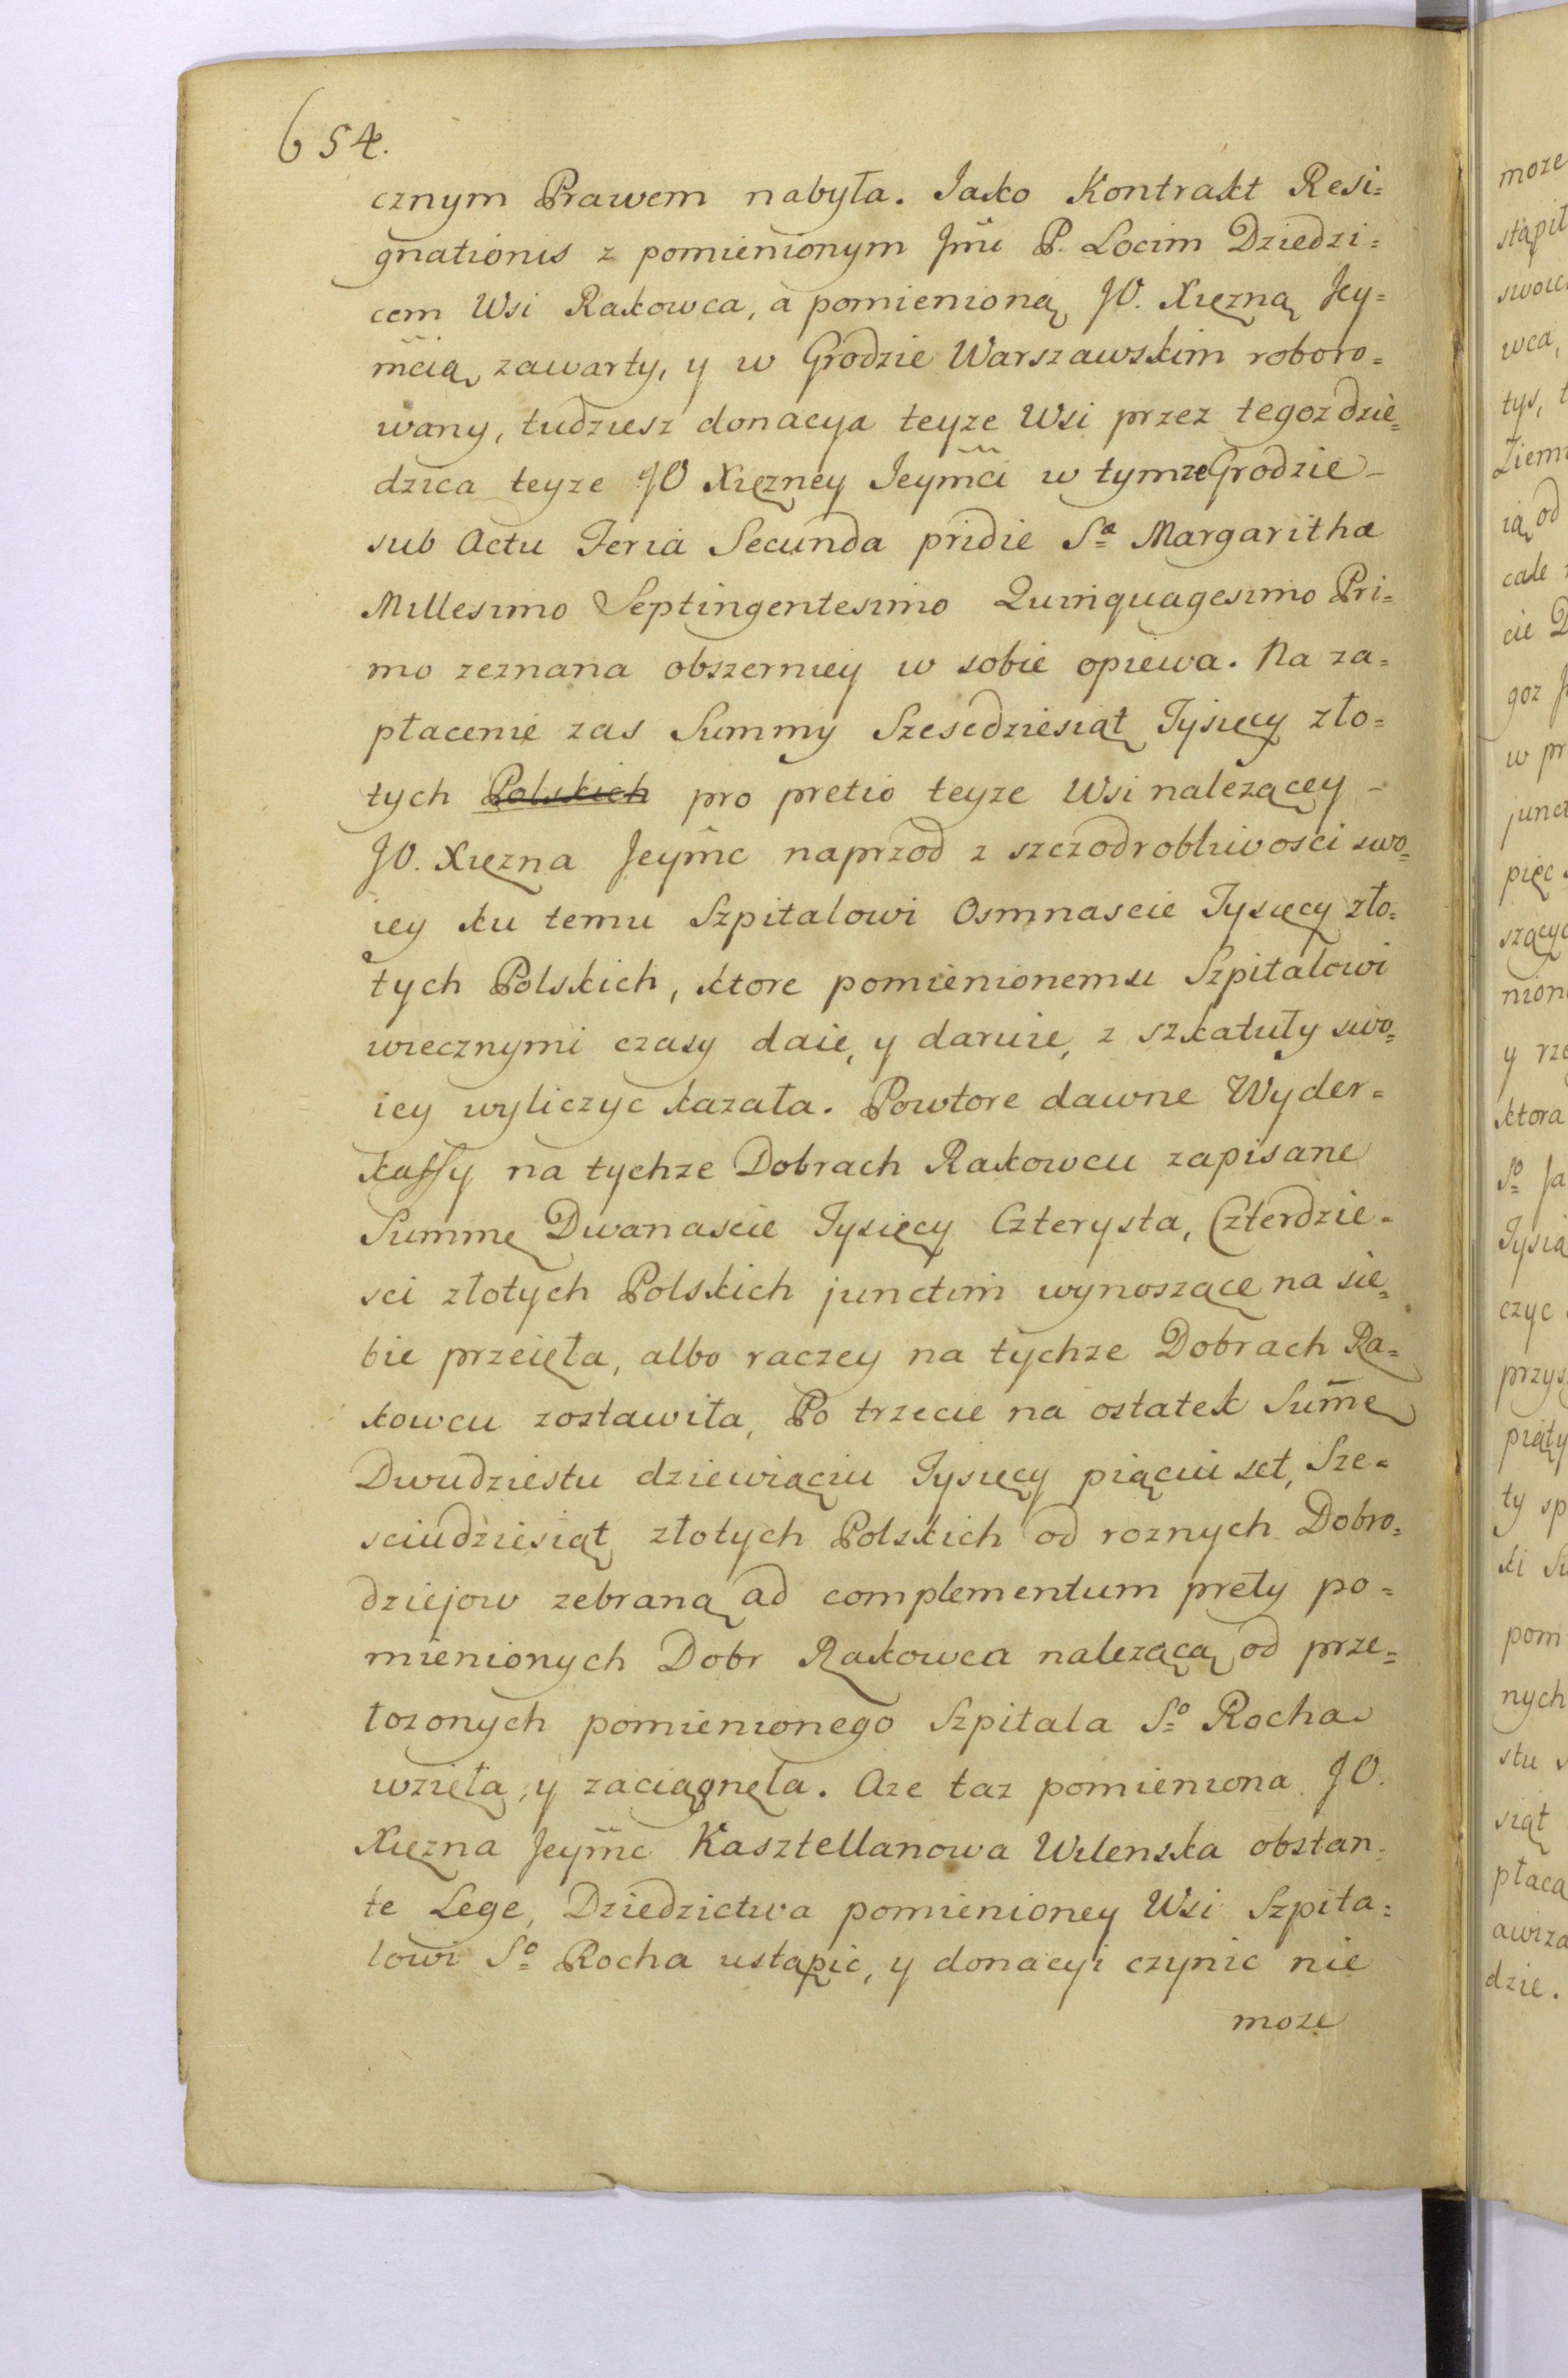 654.
cznym Prawem nabyła. Jako Kontrakt Resi=
gnationis z pomienionym Jmci P. Locim Dziedzi=
cem Wsi Rakowca, a pomienioną JO. Xięzną Jey=
mcią zawarty, y w Grodzie Warszawskim roboro=
wany, tudziesz donacya teyze Wsi przez tegoz dzie=
dzica teyze JO Xięzney Jeymci w tymze Grodzie –
sub Actu Feria Secunda pridie Sæ Margarithæ
Millesimo Septingentesimo Quinquagesimo Pri=
mo zeznana obszerniey w sobie opiewa. Na za=
płacenie zas Summy Szescdziesiąt Tysięcy zło=
tych Polskich pro pretio teyze Wsi nalezącey –
JO. Xięzna Jeymc naprzod z szczodrobliwosci swo=
iey ku temu Szpitalowi Osmnascie Tysięcy zło=
tych Polskich, ktore pomienionemu Szpitalowi
wiecznymi czasy daie, y daruie, z szkatuły swo=
iey wyliczyc kazała. Powtore dawne Wyder=
kassy na tychze Dobrach Rakowcu zapisane
Summę Dwanascie Tysięcy Czterysta, Czterdzie=
sci złotych Polskich junctim wynoszące na sie=
bie przeięła, albo raczey na tychze Dobrach Ra=
kowcu zostawiła, Po trzecie na ostatek Sum̄ę
Dwudziestu dziewiąciu Tysięcy piąciu set, Sze=
sciudziesiąt złotych Polskich od roznych Dobro=
dziejow zebraną ad complementum prety po=
mienionych Dobr Rakowca nalezącą od prze=
łozonych pomienionego Szpitala So Rocha
wzięła, y zaciągnęła. Aze taz pomieniona JO.
Xięzna Jeymc Kasztellanowa Wilenska obstan=
te Lege, Dziedzictwa pomienioney Wsi Szpita=
lowi So Rocha ustąpic, y donacyi czynic nie
moze